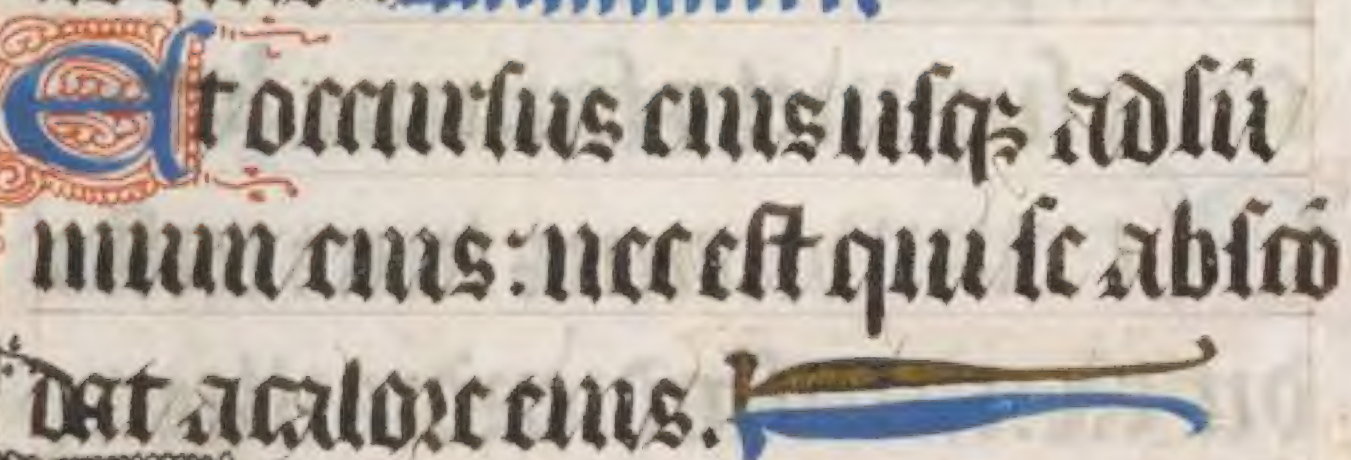 Et occursus eius usqꝫ ad sū
mum eius: nec est qui se abscō
dat a calore eius.